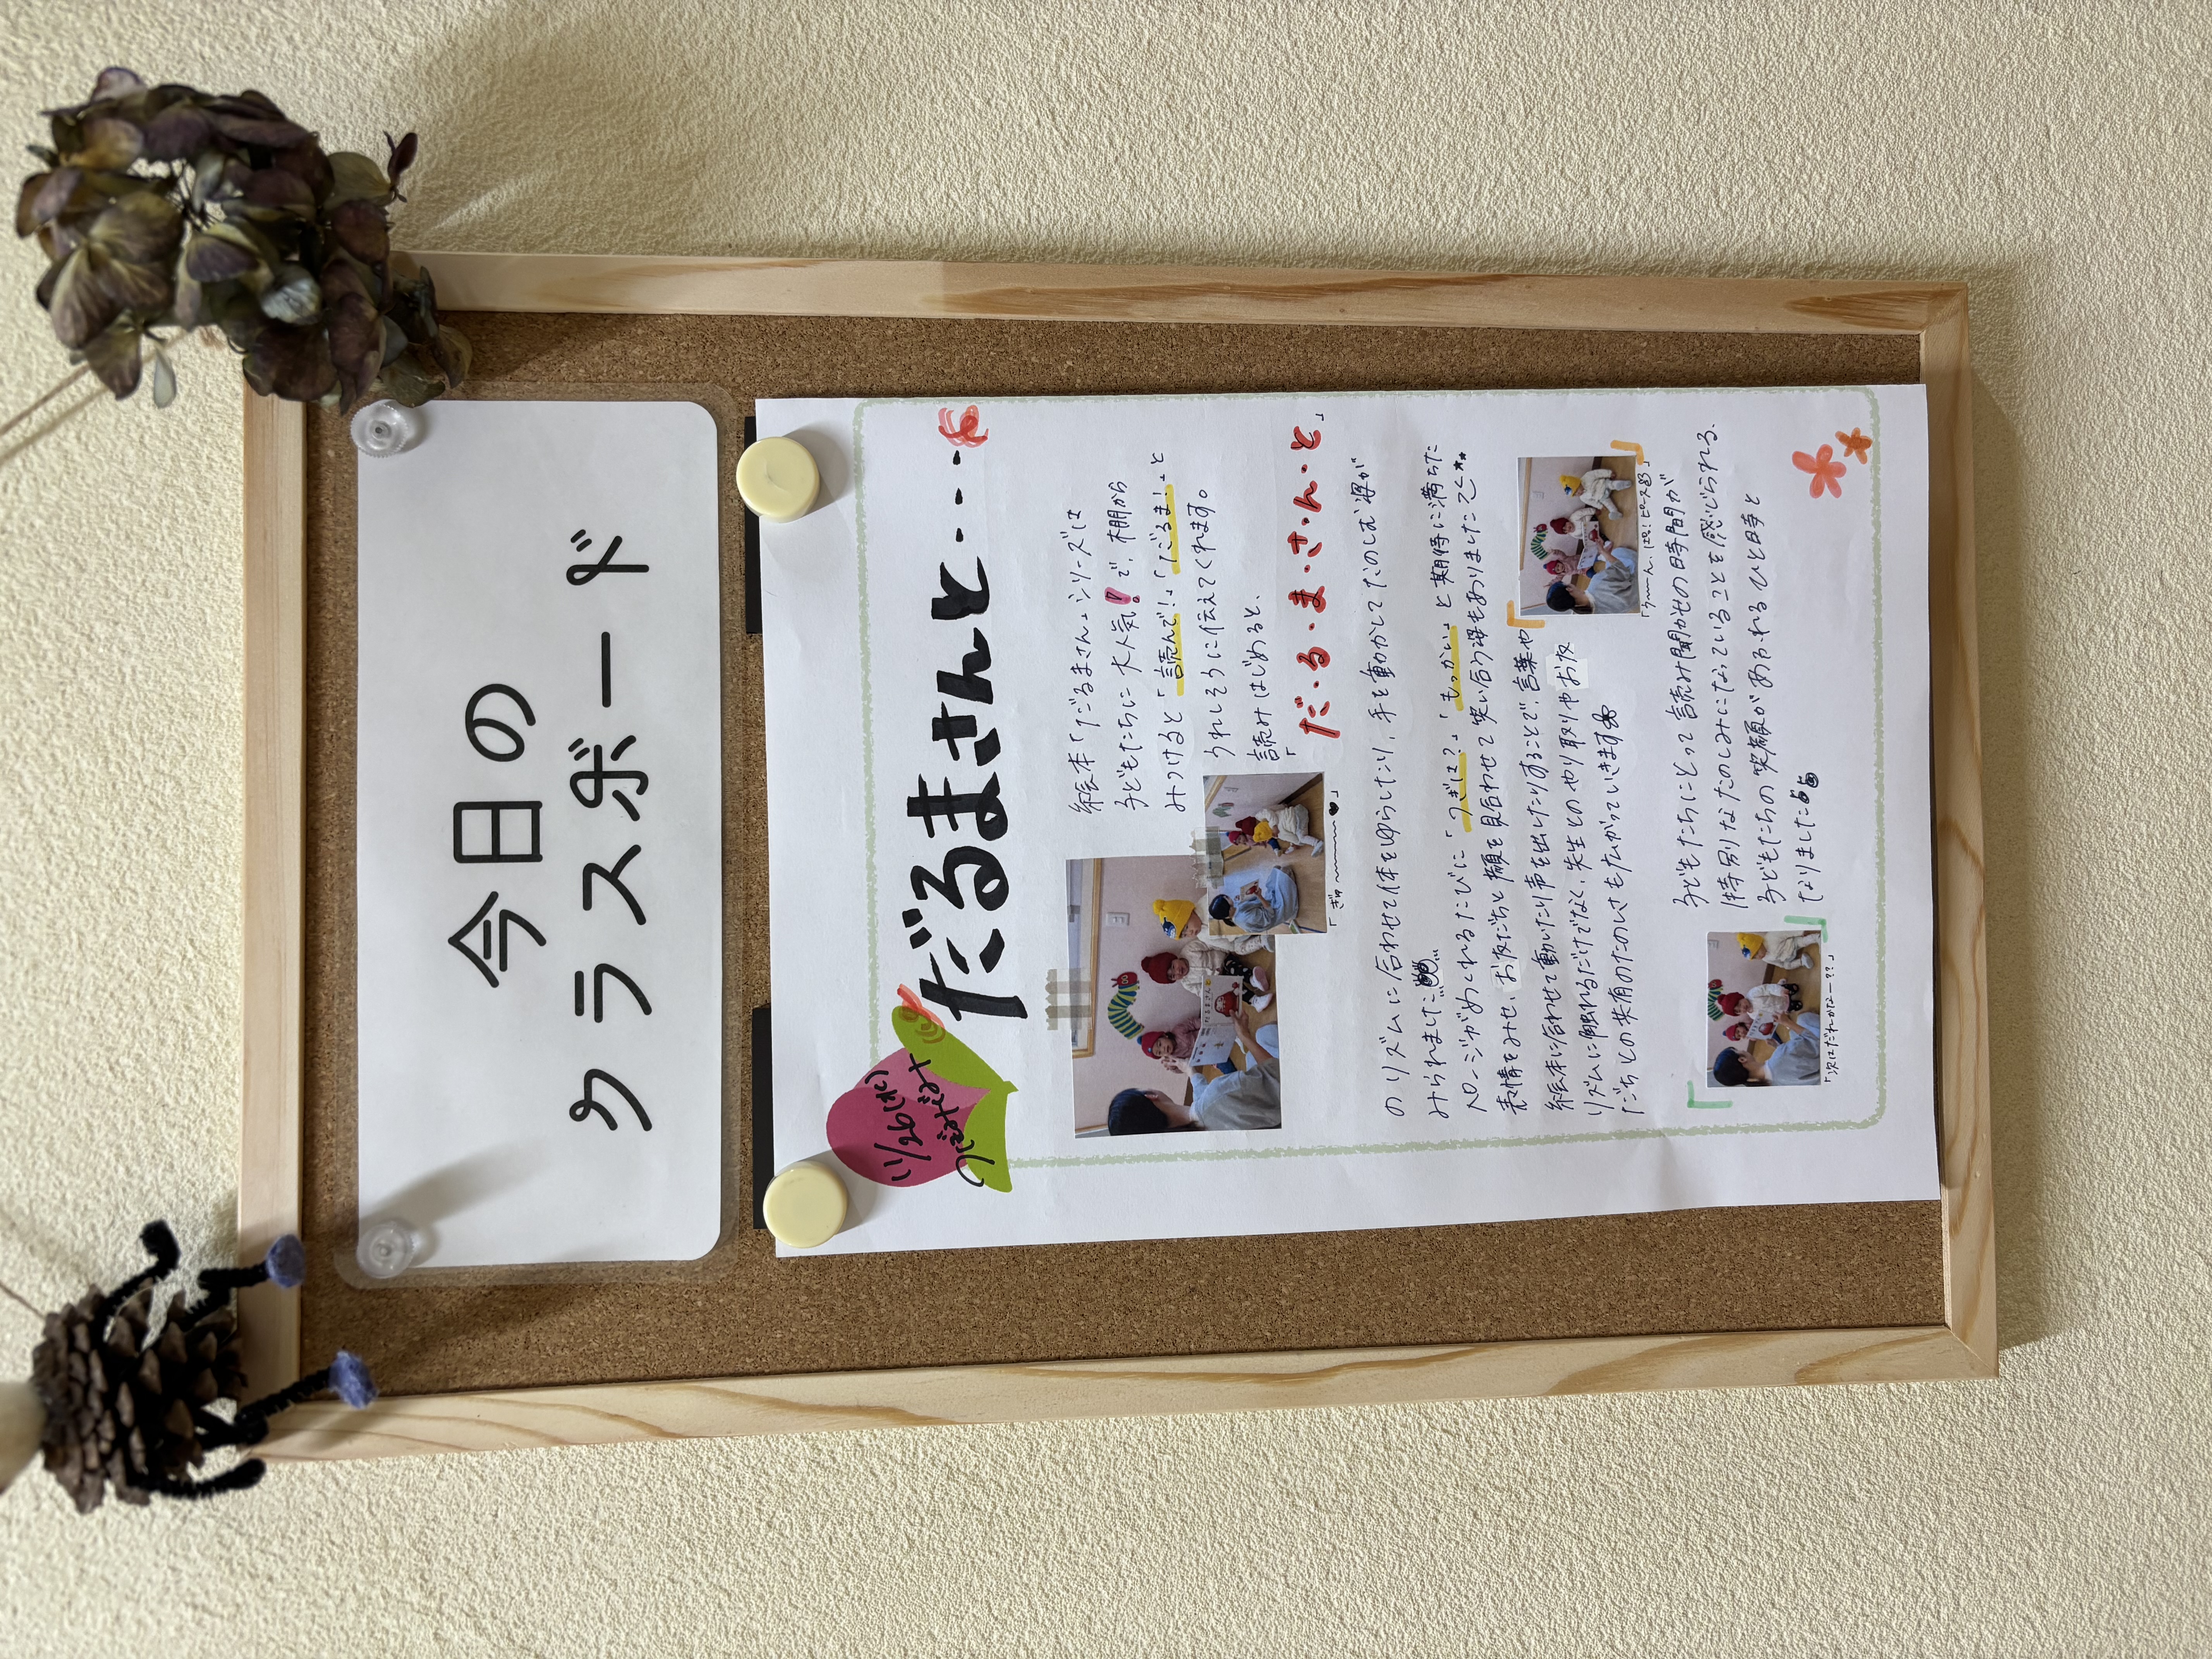 今日の
クラスボード
11/26(水)
つぼみぐみ
だるまさんと・・・
絵本「だるまさん」シリーズは
子どもたちに大人気!で、棚から
みつけると「読んで!」「だるま!」と
うれしそうに伝えてくれます。
読みはじめると、
「だ・る・ま・さ・ん・と」
「ぎゅ〜〜〜♥」
のリズムに合わせて体をゆらしたり、手を動かしてたのしむ姿が
みられました
ページがめくれるたびに「つぎは?」「もっかい」と期待に満ちた
表情をみせ、お友だちと顔を見合わせて笑い合う姿もありました
絵本に合わせて動いたり声を出したりすることで、言葉や
リズムに触れるだけでなく、先生とのやり取りやお友
だちとの共有のたのしさも広がっていきます
「う〜〜ん、ぽっ!ピース」
子どもたちにとって読み聞かせの時間が
特別なたのしみになっていることを感じられる、
子どもたちの笑顔があふれるひと時と
なりました
「次はだれかなー??」